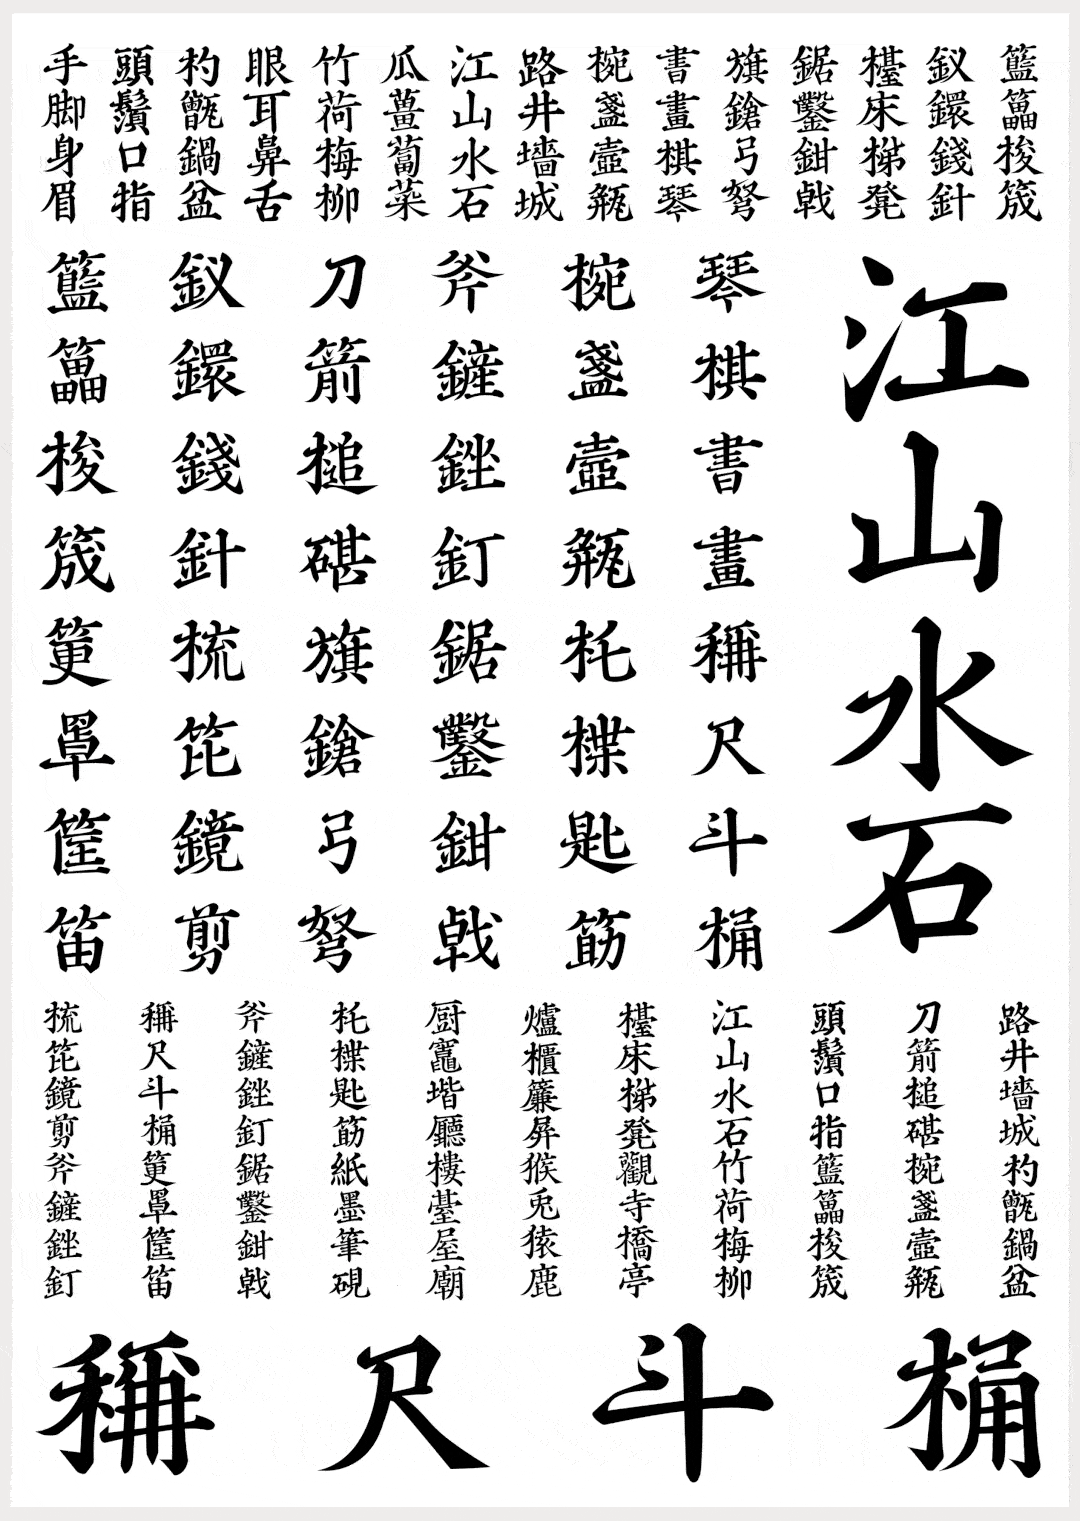 籃梭筬
釵鐶錢針
檯床梯凳
鋸鑿鉗戟
旗鎗弓弩
書畫棋琴
椀盞壺瓶
路井墻城
江山水石
瓜薑蔔菜
竹荷梅柳
眼耳鼻舌
杓甑鍋盆
頭鬚口指
手脚身眉
江山水石
琴棋書畫稱尺斗桶
椀盞壺瓶杔楪匙筯
斧鏟銼釘鋸鑿鉗戟
刀箭槌碪旗鎗弓弩
釵鐶錢針梳笓鏡剪
籃梭筬筻罩筐笛
路井墻城杓甑鍋盆
刀箭槌碪椀盞壺瓶
頭鬚口指籃梭筬
江山水石竹荷梅柳
檯床梯凳觀寺橋亭
爐櫃簾屏猴兎猿鹿
厨竈堦廳樓臺屋廟
杔楪匙筯紙墨筆硯
斧鏟銼釘鋸鑿鉗戟
稱尺斗桶筻罩筐笛
梳笓鏡剪斧鏟銼釘
稱尺斗桶